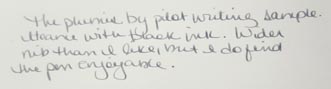 The plumix by pilot writing sample.
with black ink. Wider
nib than I like, but I do find
the pen enjoyable.